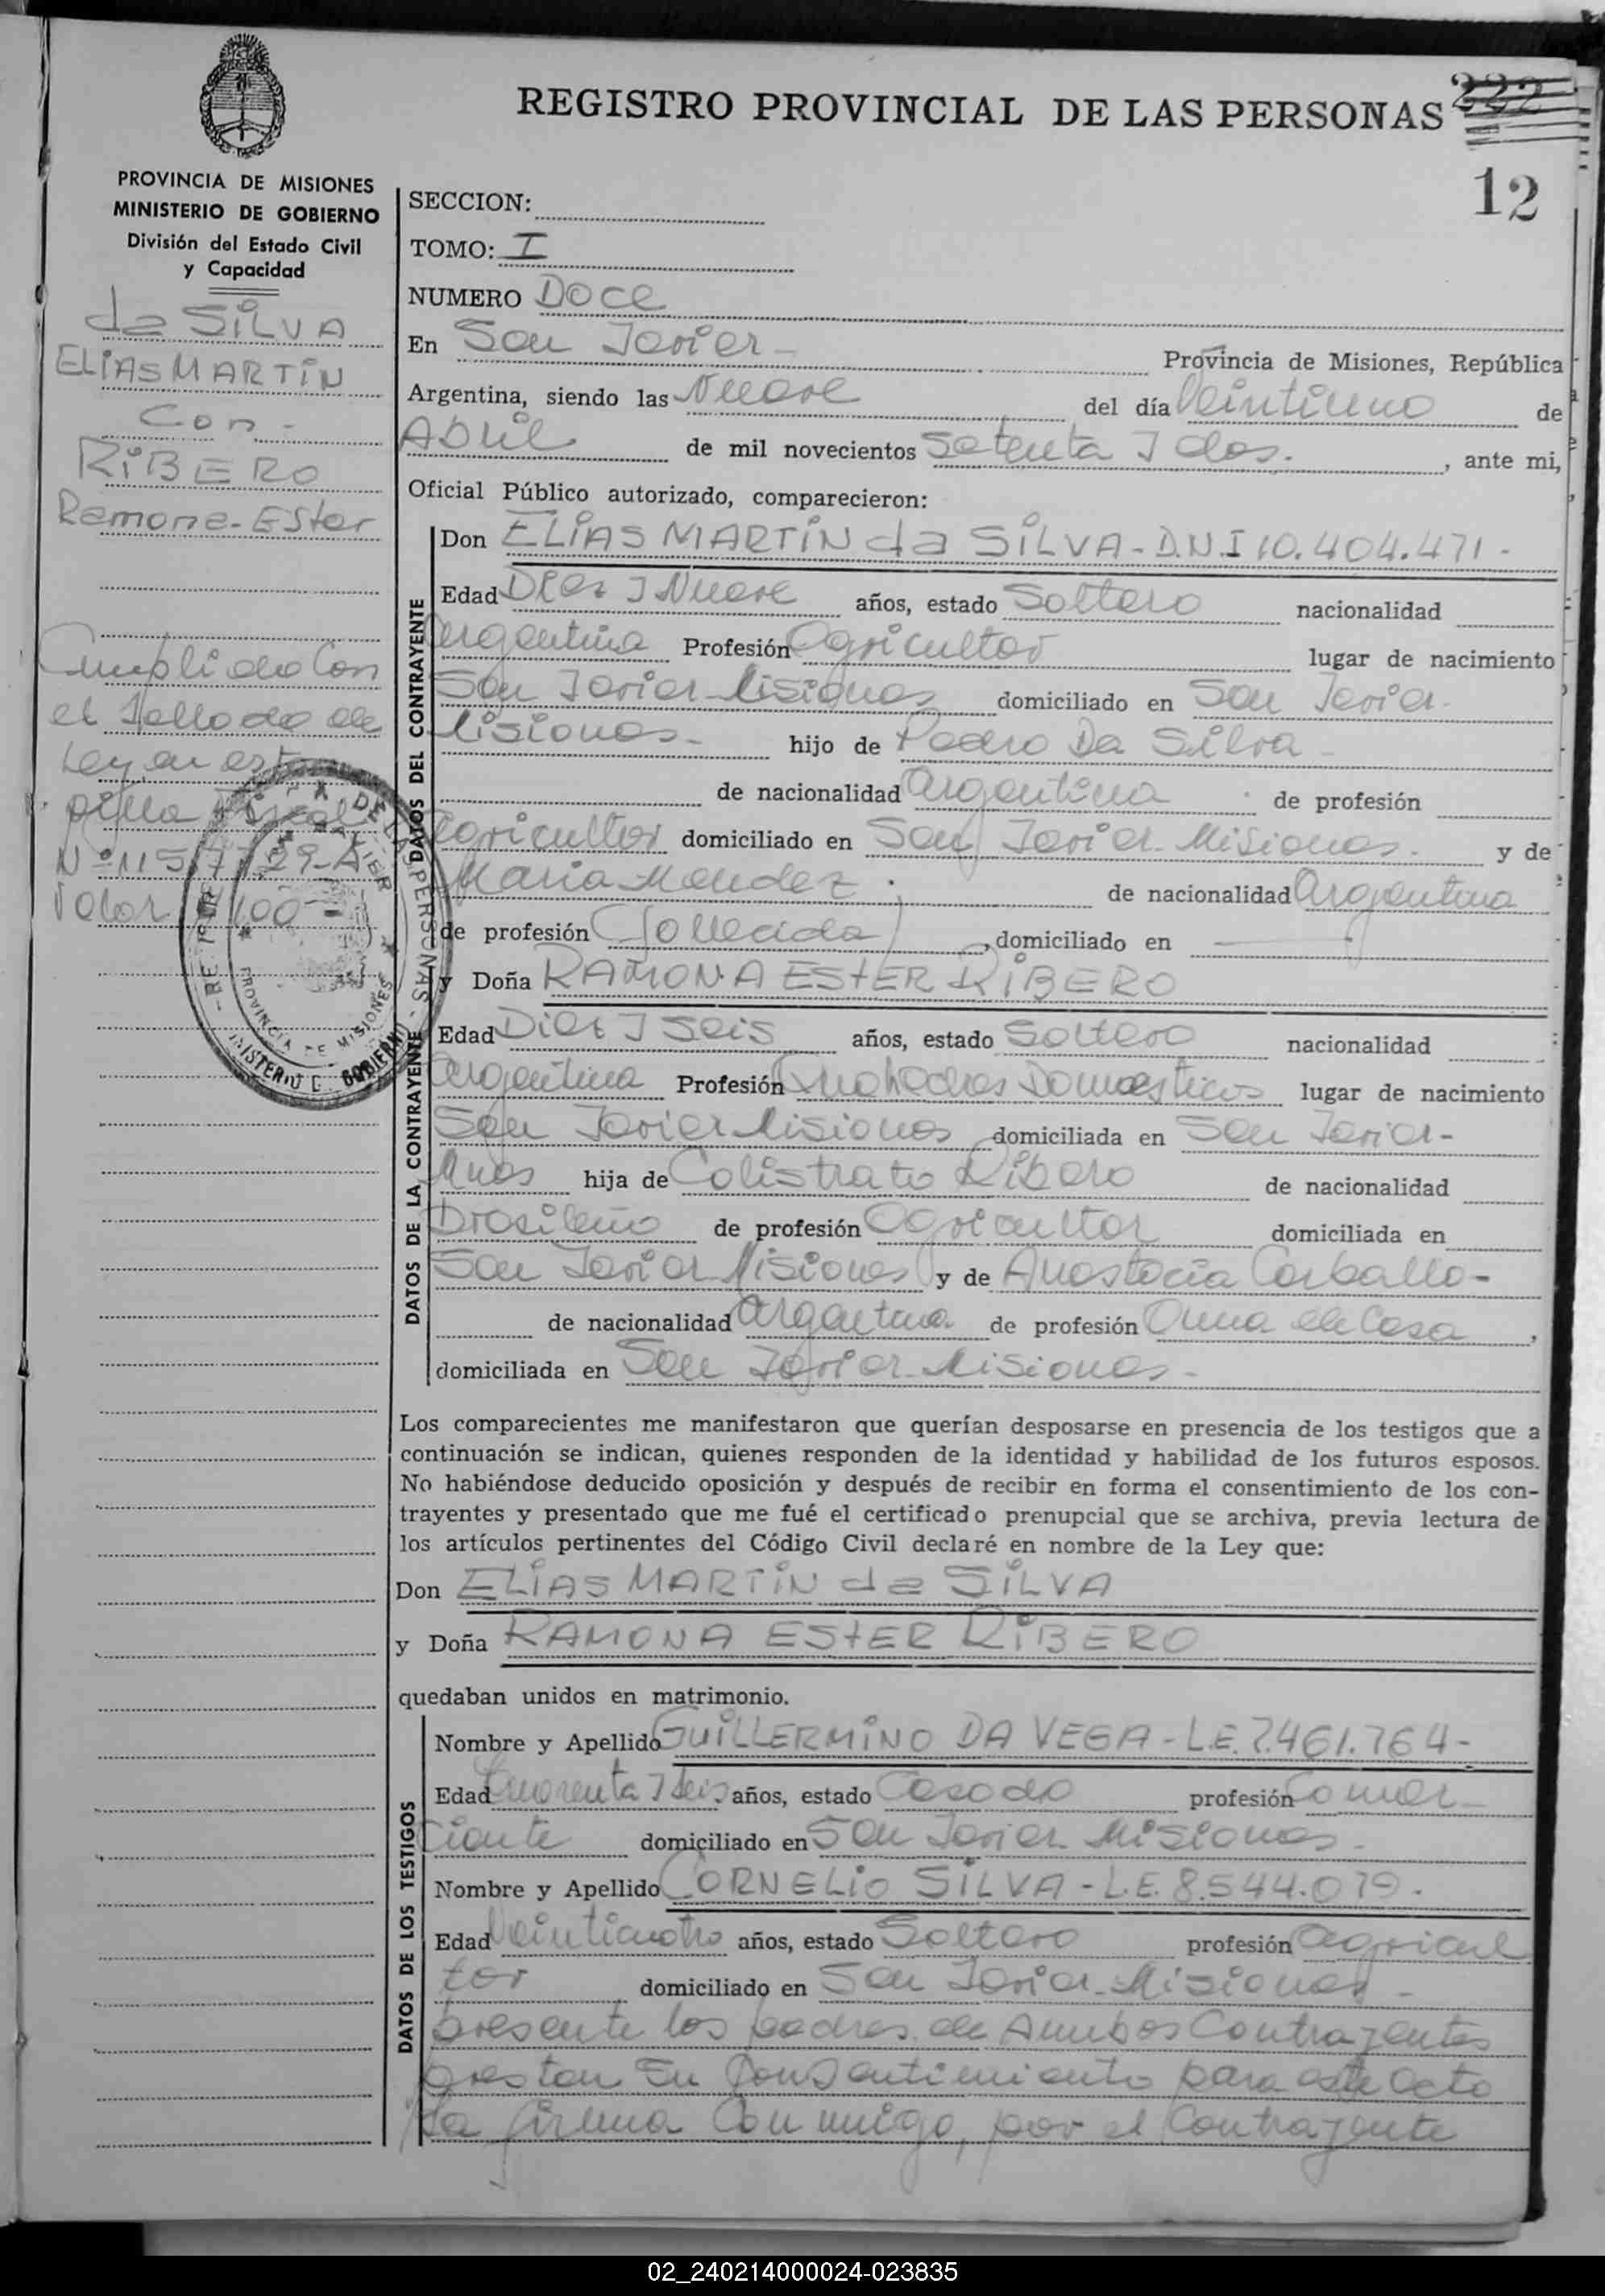 REGISTRO PROVINCIAL DE LAS PERSONAS
222
12
PROVINCIA DE MISIONES
MINISTERIO DE GOBIERNO
División del Estado Civil
y Capacidad
da SILVA
ELIAS MARTIN
Con -
RIBERO
Ramona - Ester
Cumplido Con
el Sellado de
Ley, en esta
Nº 115/7729-A
Valor 100 -
SECCION:
TOMO: I
NUMERO Doce
En San Javier - Provincia de Misiones, República
Argentina, siendo las Nueve del día Veintiuno de
Abril de mil novecientos Setenta y dos. , ante mi,
Oficial Público autorizado, comparecieron:
DATOS DEL CONTRAYENTE
Don ELIAS MARTIN da SILVA - D.N.I 10.404.471 -
Edad Diez y Nueve años, estado Soltero nacionalidad
argentina Profesión Agricultor lugar de nacimiento
San Javier - Misiones domiciliado en San Javier -
Misiones - hijo de Pedro Da Silva -
de nacionalidad argentina de profesión
agricultor domiciliado en San Javier - Misiones. y de
Maria Mendez. de nacionalidad argentina
de profesión (fallecida) , domiciliado en
y Doña RAMONA ESTER RIBERO
DATOS DE LA CONTRAYENTE
Edad Diez y Seis años, estado Soltera nacionalidad
argentina Profesión Quehaceres Domesticos lugar de nacimiento
San Javier Misiones domiciliada en San Javier -
Mnes hija de Calistrato Ribero de nacionalidad
Brasileño de profesión agricultor domiciliada en
San Javier Misiones y de Anastacia Carballo -
de nacionalidad argentina de profesión Ama de Casa ,
domiciliada en San Javier - Misiones -
Los comparecientes me manifestaron que querían desposarse en presencia de los testigos que a
continuación se indican, quienes responden de la identidad y habilidad de los futuros esposos.
No habiéndose deducido oposición y después de recibir en forma el consentimiento de los con-
trayentes y presentado que me fué el certificado prenupcial que se archiva, previa lectura de
los artículos pertinentes del Código Civil declaré en nombre de la Ley que:
Don ELIAS MARTIN da SILVA
y Doña RAMONA ESTER RIBERO
quedaban unidos en matrimonio.
DATOS DE LOS TESTIGOS
Nombre y Apellido GUILLERMINO DA VEGA - L.E. 7.461.764 -
Edad Cuarenta y Seis años, estado Casado profesión Comer-
ciante domiciliado en San Javier - Misiones -
Nombre y Apellido CORNELIO SILVA - L.E. 8.544.079 -
Edad Veinticuatro años, estado Soltero profesión agricul
tor domiciliado en San Javier - Misiones -
presente los padres de Ambos Contrayentes
prestan su Consentimiento para este acto
la firma Con migo, por el Contrayente
02_240214000024-023835